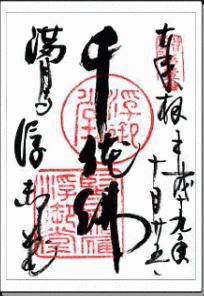 奉拝 平成十九年
十月廿五日
千体佛
満月寺
浮御堂